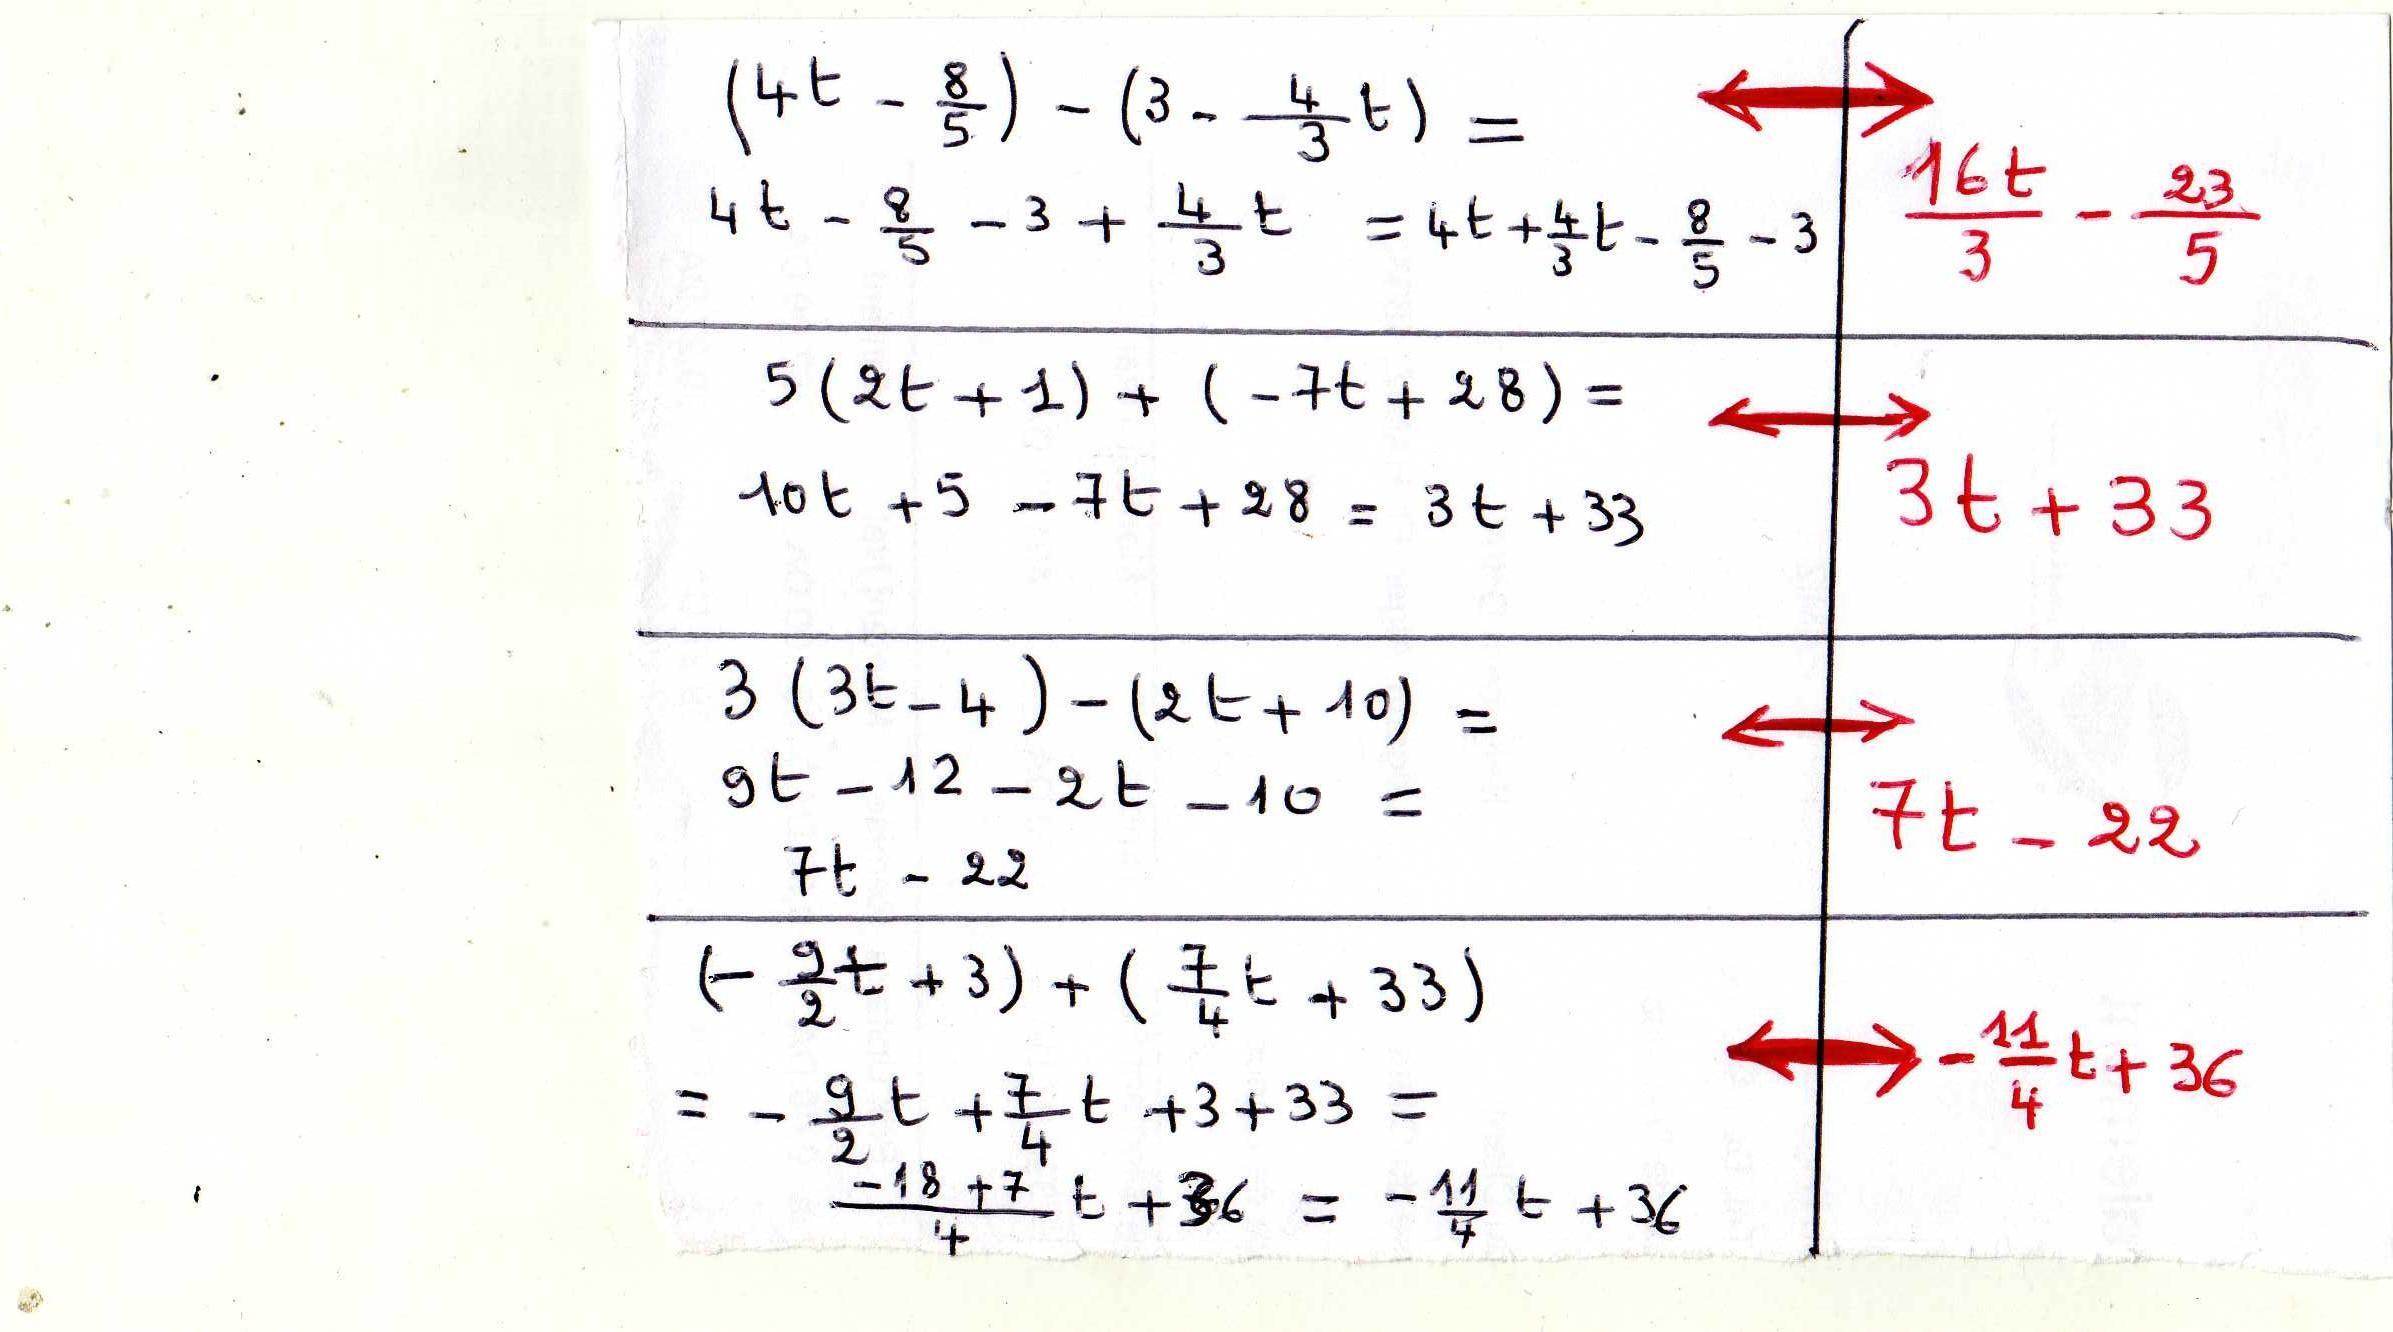 (4t - 8/5) - (3 - 4/3 t) =
4t - 8/5 - 3 + 4/3 t = 4t + 4/3 t - 8/5 - 3
16t/3 - 23/5
5(2t + 1) + (-7t + 28) =
10t + 5 - 7t + 28 = 3t + 33
3t + 33
3(3t - 4) - (2t + 10) =
9t - 12 - 2t - 10 =
7t - 22
7t - 22
(- 9/2 t + 3) + (7/4 t + 33)
= - 9/2 t + 7/4 t + 3 + 33 =
-18 + 7/4 t + 36 = - 11/4 t + 36
- 11/4 t + 36